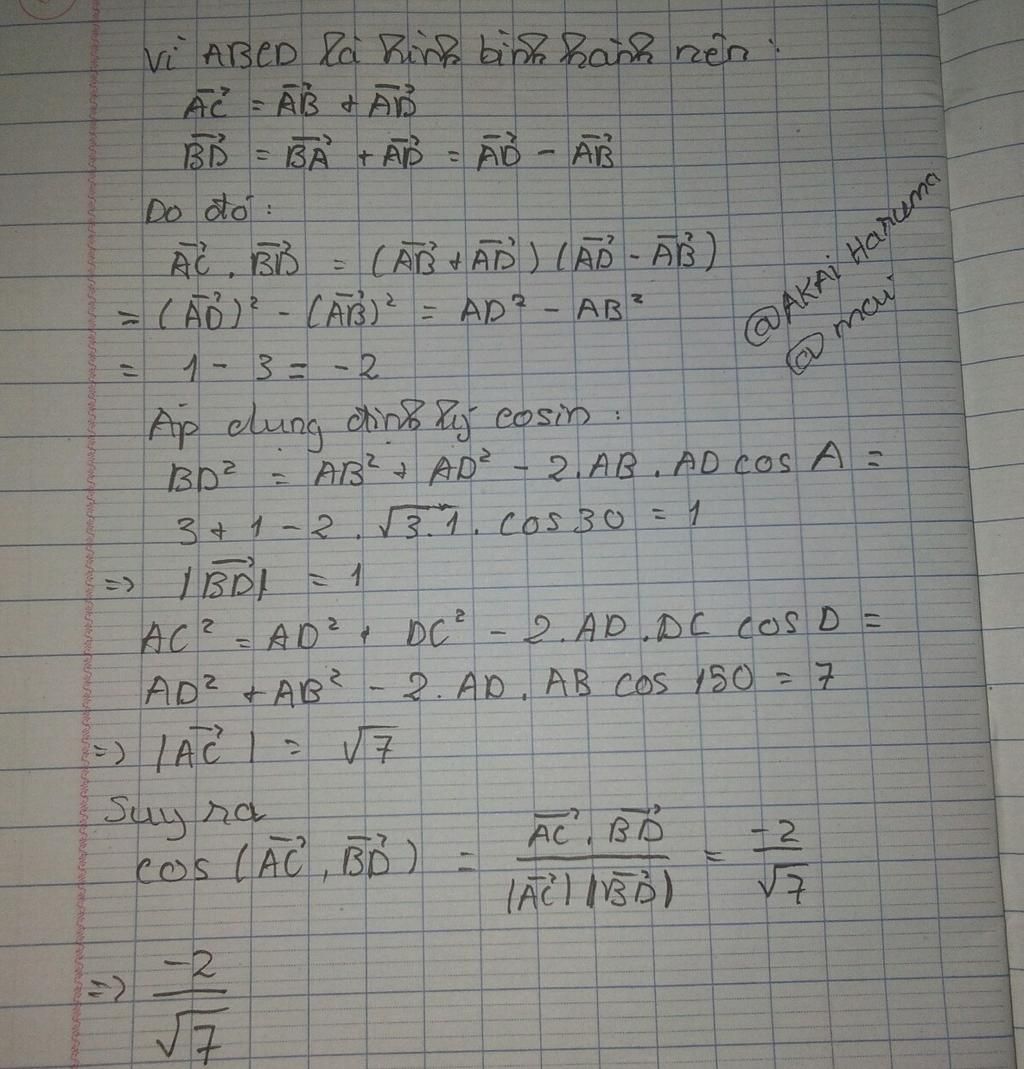 Vì ABCD là hình bình hành nên:
$\overrightarrow{AC} = \overrightarrow{AB} + \overrightarrow{AD}$
$\overrightarrow{BD} = \overrightarrow{BA} + \overrightarrow{AD} = \overrightarrow{AD} - \overrightarrow{AB}$
Do đó:
$\overrightarrow{AC} . \overrightarrow{BD} = (\overrightarrow{AB} + \overrightarrow{AD})(\overrightarrow{AD} - \overrightarrow{AB})$
$= (\overrightarrow{AD})^2 - (\overrightarrow{AB})^2 = AD^2 - AB^2$
$= 1 - 3 = -2$
@AKAI Haruma
@mai
Áp dụng định lý cosin:
$BD^2 = AB^2 + AD^2 - 2.AB.AD cos A =$
$3 + 1 - 2.\sqrt{3.1}.cos 30 = 1$
$=> |\overrightarrow{BD}| = 1$
$AC^2 = AD^2 + DC^2 - 2.AD.DC cos D =$
$AD^2 + AB^2 - 2.AD.AB cos 150 = 7$
$=> |\overrightarrow{AC}| = \sqrt{7}$
Suy ra
$cos(\overrightarrow{AC}, \overrightarrow{BD}) = \frac{\overrightarrow{AC}.\overrightarrow{BD}}{|\overrightarrow{AC}||\overrightarrow{BD}|} = \frac{-2}{\sqrt{7}}$
$=> \frac{-2}{\sqrt{7}}$